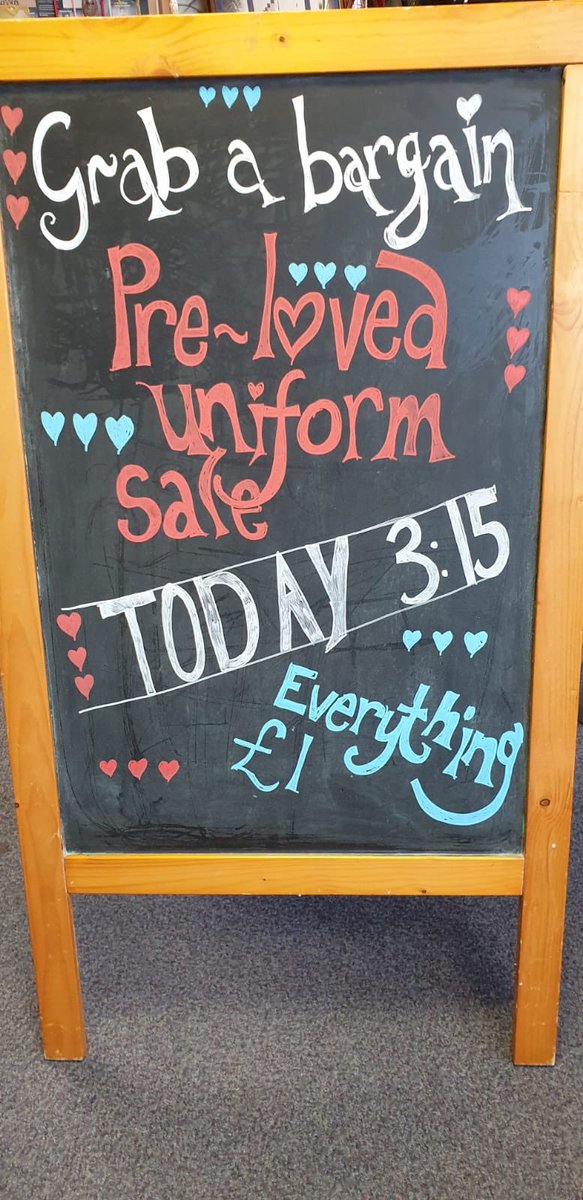 Grab a bargain
Pre~loved
uniform
sale
TODAY 3:15
Everything
£1